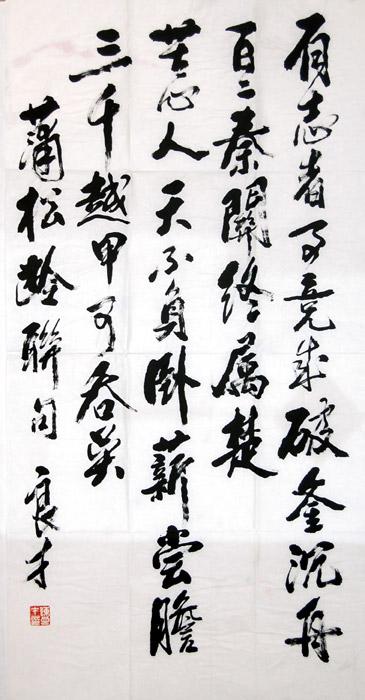 有志者事竟成破釜沉舟
百二秦關終属楚
苦心人天不負卧薪嘗膽
三千越甲可吞吴
蒲松齡聯句 良才